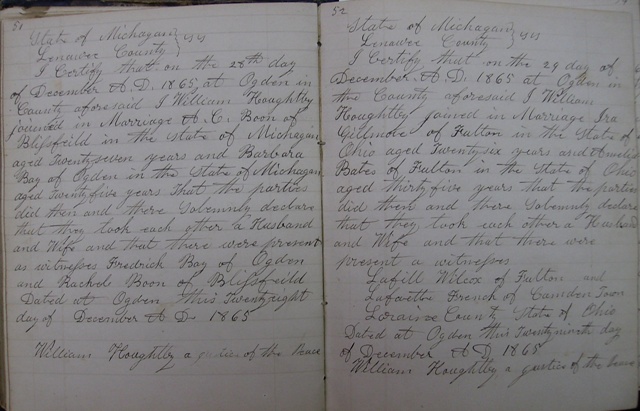 51
State of Michagan } ss
Lenawee County }
I Certify that on the 28th day
of December A.D. 1865, at Ogden in
County aforesaid I William Houghtby
joinned in Marriage A. C. Boon of
Blissfeild in the State of Michagan
aged Twentyseven years and Barbara
Bay of Ogden in the State of Michagan
aged Twentyfive years That the parties
did then and there Solemnly declare
that they took each other a Husband
and Wife and that there were present
as witnesses Fredrick Bay of Ogden
and Rachel Boon of Blissfeild
Dated at Ogden this Twentyeight
day of December A D. 1865
William Houghtby a justice of the Peace
52
State of Michagan } ss
Lenawee County }
I Certify that on the 29 day of
December A. D. 1865 at Ogden in
the County aforesaid I William
Houghtby joined in Marriage Ira
Gillmore of Fulton in the State of
Ohio aged Twentysix years and
Bates of Fulton in the State of Ohio
aged thirtyfive years that the parties
did then and there Solemnly declare
that they took each other a Husband
and Wife and that there were
present a witnesses
Wilcox of Fulton and
Lafaette French of Camden Town
Loraine County State of Ohio
Dated at Ogden this Twentyninth day
of December A D 1865
William Houghtby a justice of the Peace